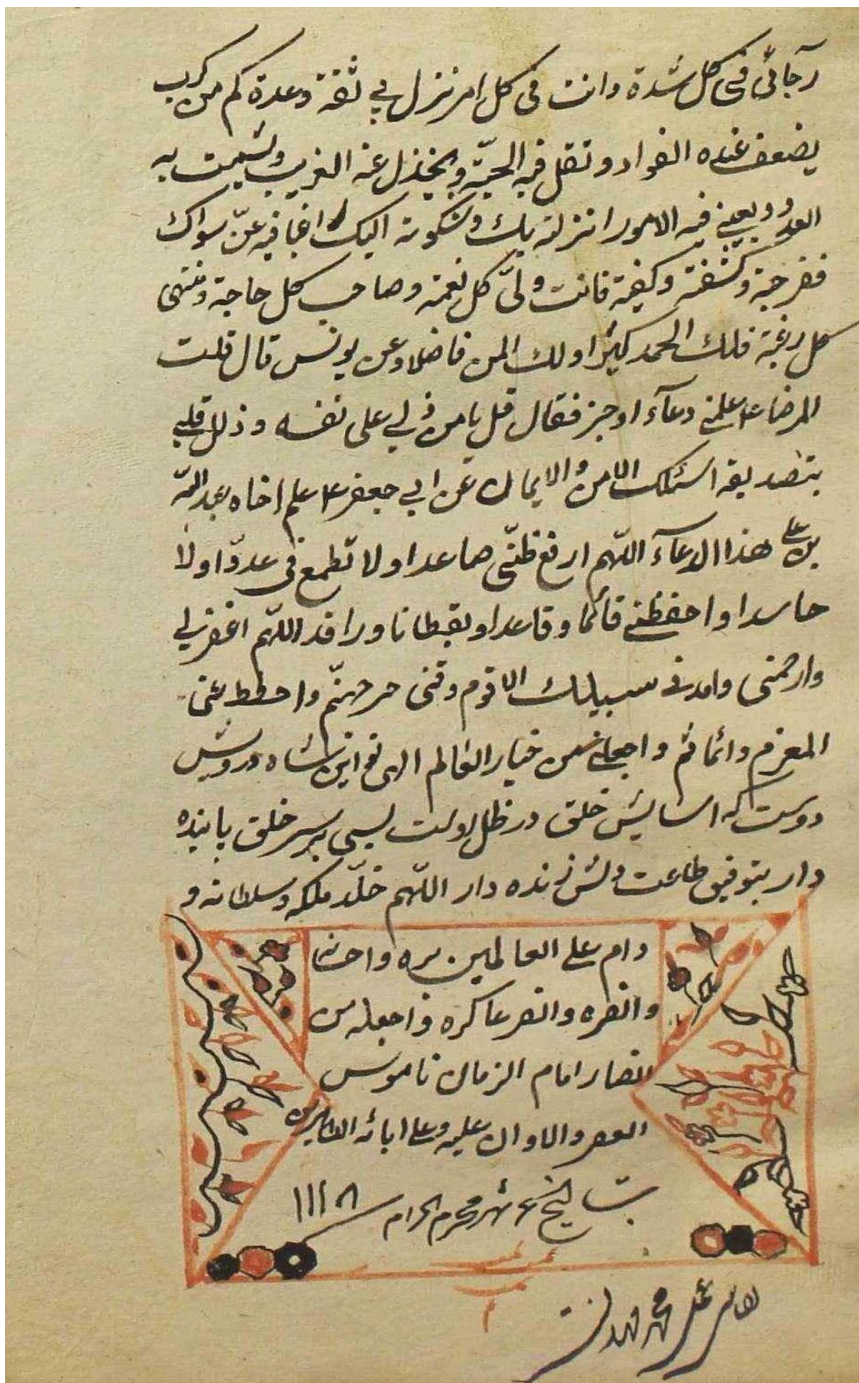 رجائي في كل شدة وانت في كل امر نزل بي ثقة وعدة كم من كرب
يضعف عنده الفواد وتقل فيه الحيّة ويخذل عنه القريب ويشمت به
العدو ويعيني فيه الامور انزلته بك وشكوته اليك راغبا فيه عمّن سواك
ففرجته وكشفته وكفيته فانت وليّ كل نعمة وصاحب كل حاجة ومنتهى
كل رغبة فلك الحمد كثيرا ولك المن فاضلا وعن يونس قال قلت
للرضا ع علمني دعآء اوجز فقال قل يا من دلني على نفسه وذلل قلبي
بتصديقه اسئلك الامن والايمان عن ابي جعفر ع علم اخاه عبد اللّه
بن علي هذا الدعآء اللّهم ارفع ظنّي صاعدا ولا تطمع في عدوّا ولا
حاسدا واحفظني قائما وقاعدا ويقظانا وراقدا اللّهم اغفر لي
وارحمني واهدني سبيلك الاقوم وقني حر جهنّم واحطط عني
المغرم والمأثم واجعلني من خيار العالم الهى تو اين شاه درويش
دوست كه اسايش خلق در ظل اوست بسى بر سر خلق پاينده
دار بتوفيق طاعت دلش زنده دار اللّهم خلّد ملكه وسلطانه و
دام على العالمين بره واحسا
وانصره وانصر عساكره واجعله من
انصار امام الزمان ناموس
العصر والاوان عليه وعلى ابائه الطاهرين
بتاريخ شهر محرم الحرام ١١١٨
تمت